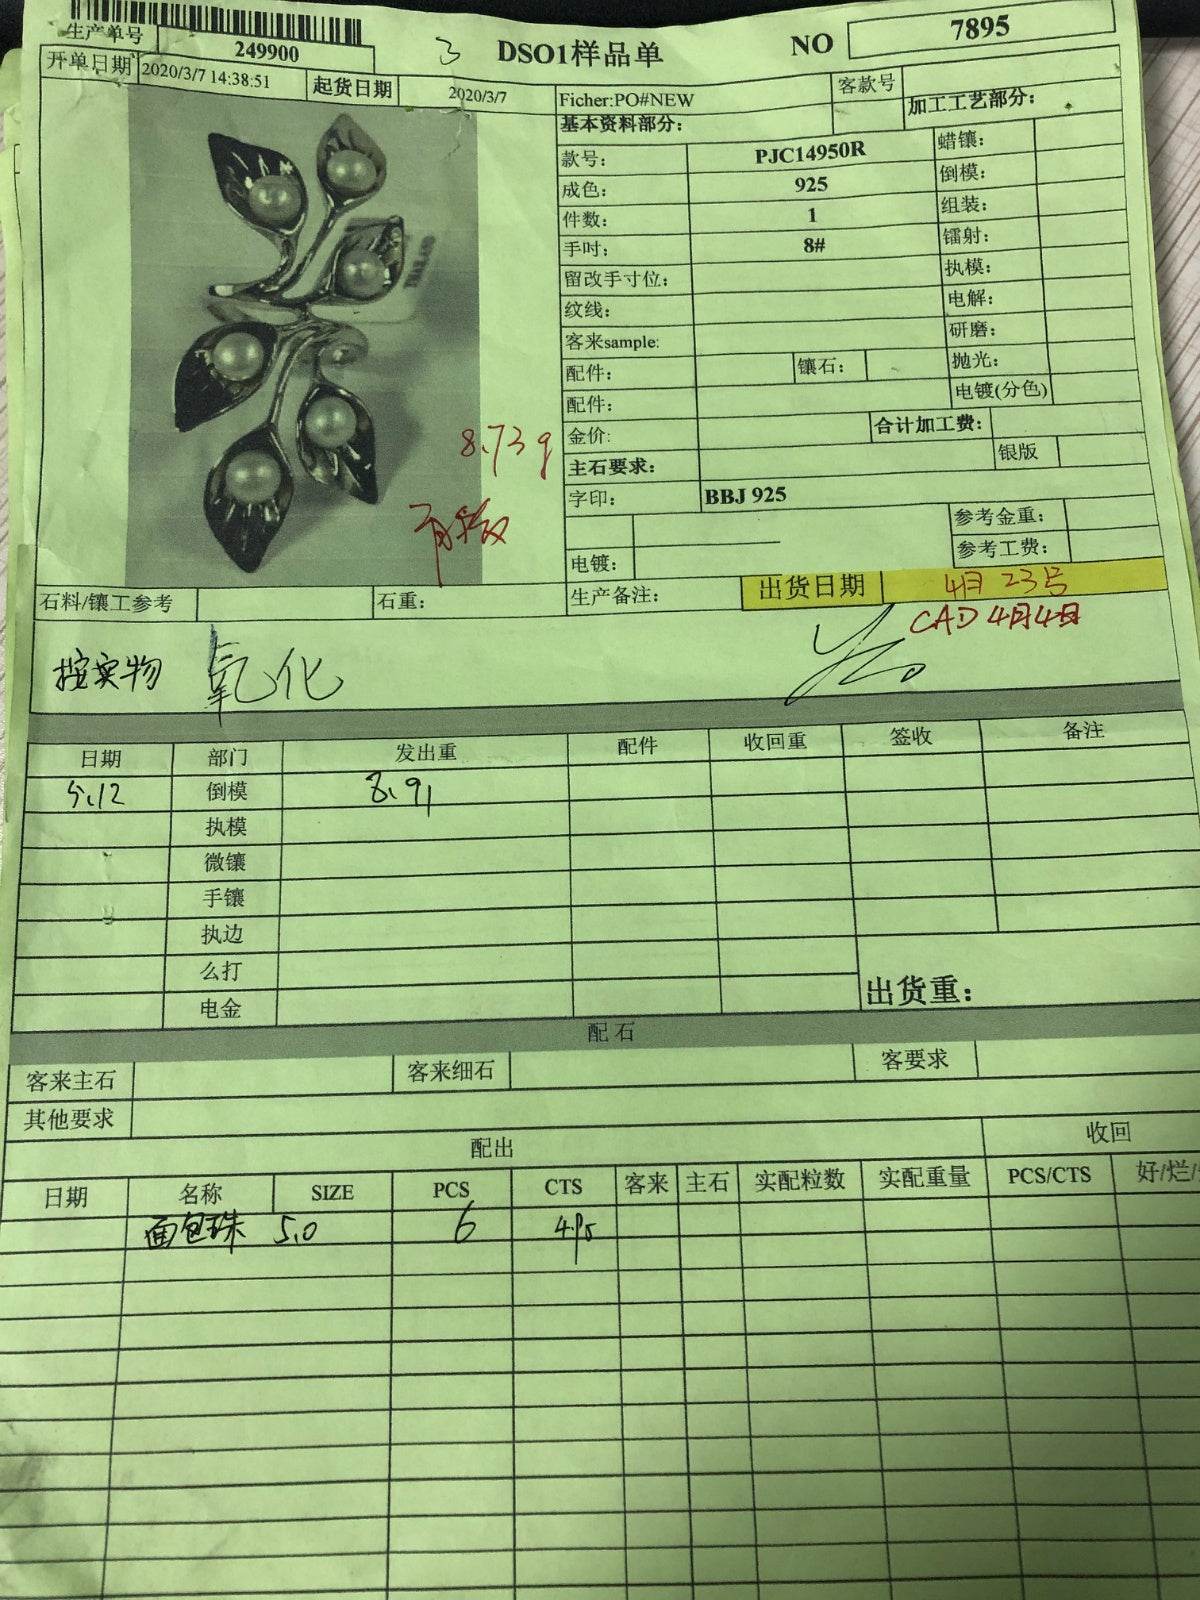 生产单号
249900
3
DSO1样品单
NO
7895
开单日期 2020/3/7 14:38:51 起货日期 2020/3/7
Ficher:PO#NEW
客款号
基本资料部分:
加工工艺部分:
款号: PJC14950R 蜡镶:
成色: 925 倒模:
件数: 1 组装:
手吋: 8# 镭射:
留改手寸位: 执模:
纹线: 电解:
客来sample: 研磨:
配件: 镶石: 抛光:
配件: 电镀(分色)
金价: 合计加工费:
主石要求: 银版
字印: BBJ 925
参考金重:
电镀: 参考工费:
THAILAND
8.73g
有版
石料/镶工参考 石重: 生产备注: 出货日期 4月23号
CAD 4月4日
按实物 氧化
日期 部门 发出重 配件 收回重 签收 备注
5.12 倒模 8.91
执模
微镶
手镶
执边
么打
电金
出货重:
配石
客来主石 客来细石 客要求
其他要求
配出 收回
日期 名称 SIZE PCS CTS 客来 主石 实配粒数 实配重量 PCS/CTS 好/烂/
面包珠 5.0 6 4.95